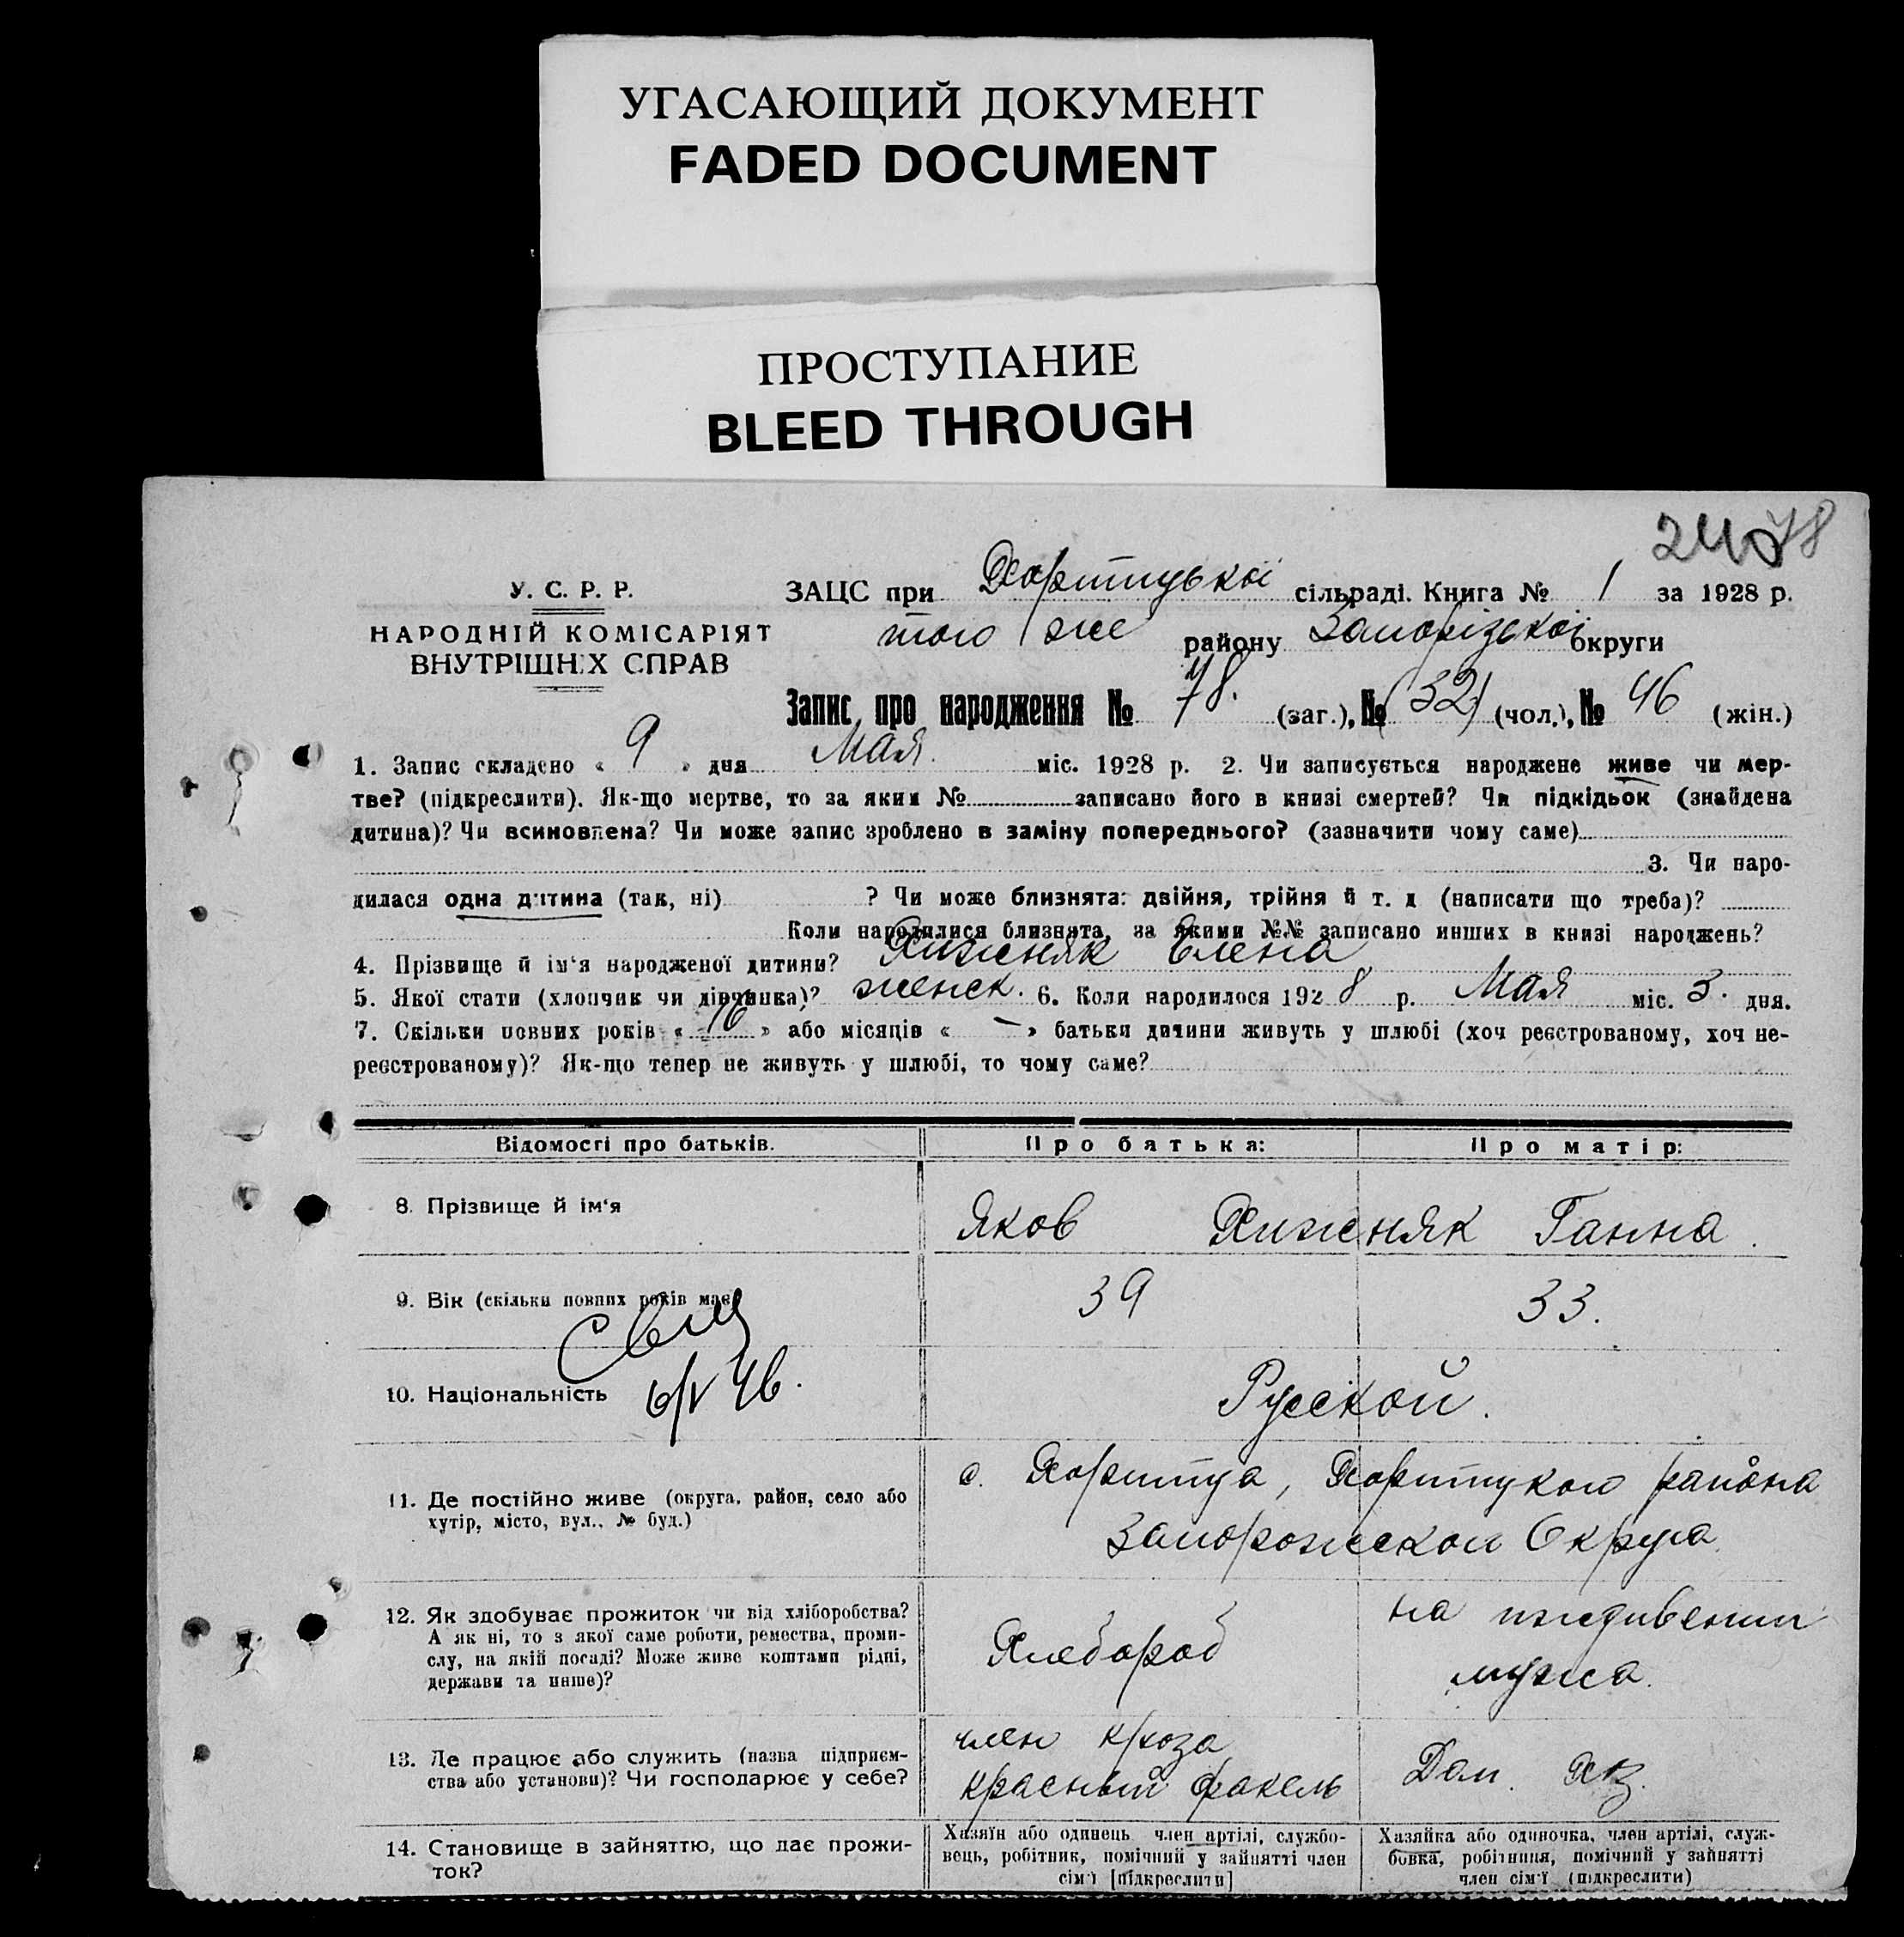 УГАСАЮЩИЙ ДОКУМЕНТ
FADED DOCUMENT
ПРОСТУПАНИЕ
BLEED THROUGH
78
У. С. Р. Р.
НАРОДНІЙ КОМІСАРІЯТ
ВНУТРІШНІХ СПРАВ
ЗАЦС при Хортицької сільраді. Книга № 1 за 1928 р.
того же району Запорізської округи
Запис про народження № 78. (заг.), № (32) (чол.), № 46 (жін.)
1. Запис складено « 9 » дня Мая. міс. 1928 р. 2. Чи записується народжене живе чи мер-
тве? (підкреслити). Як-що мертве, то за яким № записано його в книзі смертей? Чи підкідьок (знайдена
дитина)? Чи всиновлена? Чи може запис зроблено в заміну попереднього? (зазначити чому саме)
3. Чи наро-
дилася одна дитина (так, ні) ? Чи може близнята: двійня, трійня й т. д (написати що треба)?
Коли народилися близнята, за якими №№ записано инших в книзі народжень?
4. Прізвище й ім'я народженої дитини? Хижняк Елена
5. Якої стати (хлопчик чи дівчинка)? женск. 6. Коли народилося 1928 р. Мая міс. 3. дня.
7. Скільки повних років « 16 » або місяців « – » батьки дитини живуть у шлюбі (хоч реєстрованому, хоч не-
реєстрованому)? Як-що тепер не живуть у шлюбі, то чому саме?
Відомості про батьків. Про батька: Про матір:
8. Прізвище й ім'я Яков Хижняк Ганна.
9. Вік (скільки повних років має) 39 33.
10. Національність Русской.
11. Де постійно живе (округа, район, село або
хутір, місто, вул., № буд.)
с. Хортица, Хортицкого района
Запорожской Округа.
12. Як здобуває прожиток чи від хліборобства?
А як ні, то з якої саме роботи, ремества, проми-
слу, на якій посаді? Може живе коштами рідні,
держави та инше)?
Хлебороб
на иждивении
мужа.
13. Де працює або служить (назва підприєм-
ства або установи)? Чи господарює у себе?
член
красный факель
Дом. хоз.
14. Становище в зайняттю, що дає прожи-
ток?
Хазяїн або одинець член артілі, службо-
вець, робітник, помічний у зайнятті член
сім'ї [підкреслити]
Хазяйка або одиночка, член артілі, служ-
бовка, робітниця, помічний у зайнятті
член сім'ї (підкреслити)